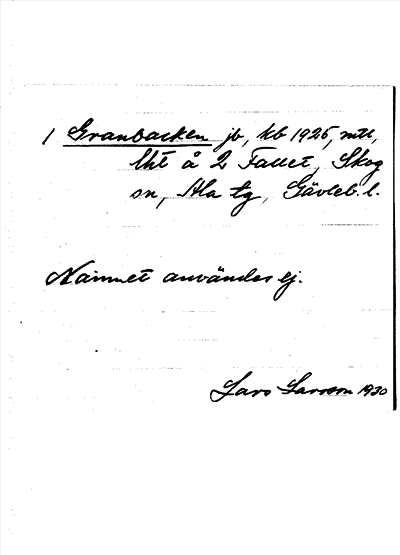 1 Granbacken jb, kb 1925, mtl,
lht å 2 Fallet, Skog
sn, Ala tg, Gävleb. l.
Namnet användes ej.
Lars Larsson 1930